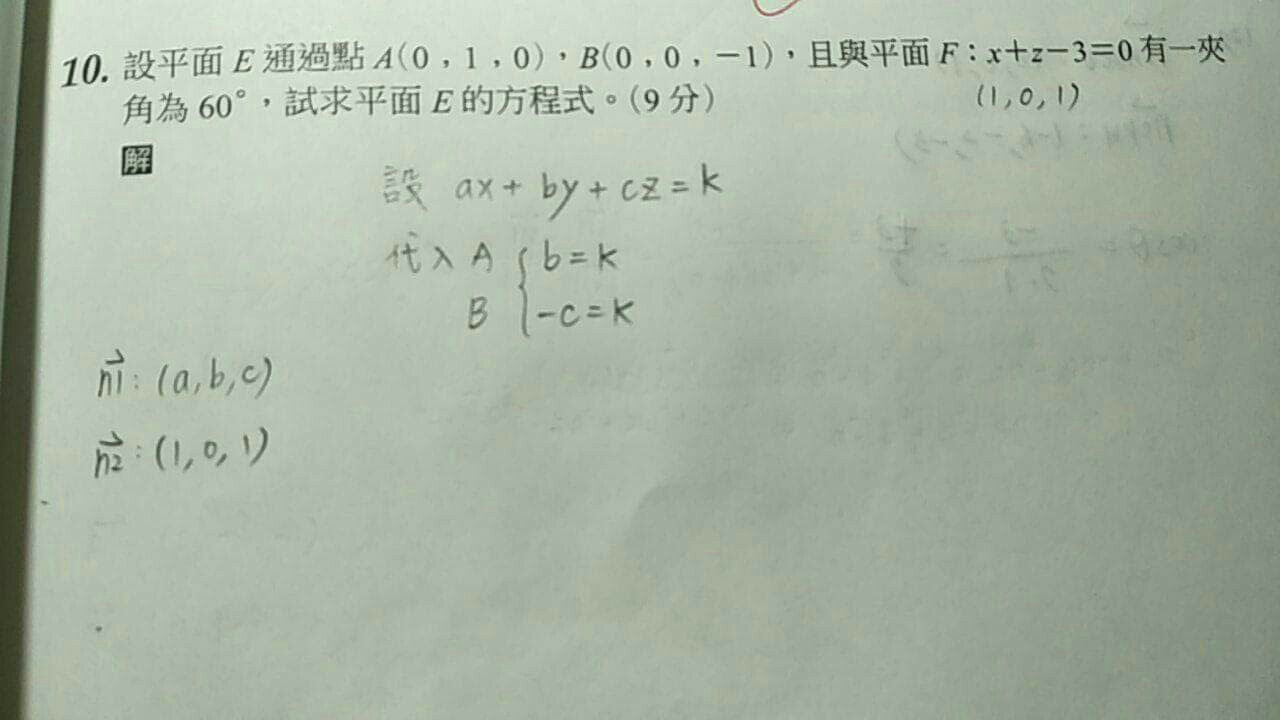 10. 設平面 E 通過點 A(0，1，0)，B(0，0，−1)，且與平面 F：x+z−3=0 有一夾
角為 60°，試求平面 E 的方程式。(9 分)
(1,0,1)
解
設 ax+by+cz=k
代入 A { b=k
B -c=k
n1: (a,b,c)
n2: (1,0,1)